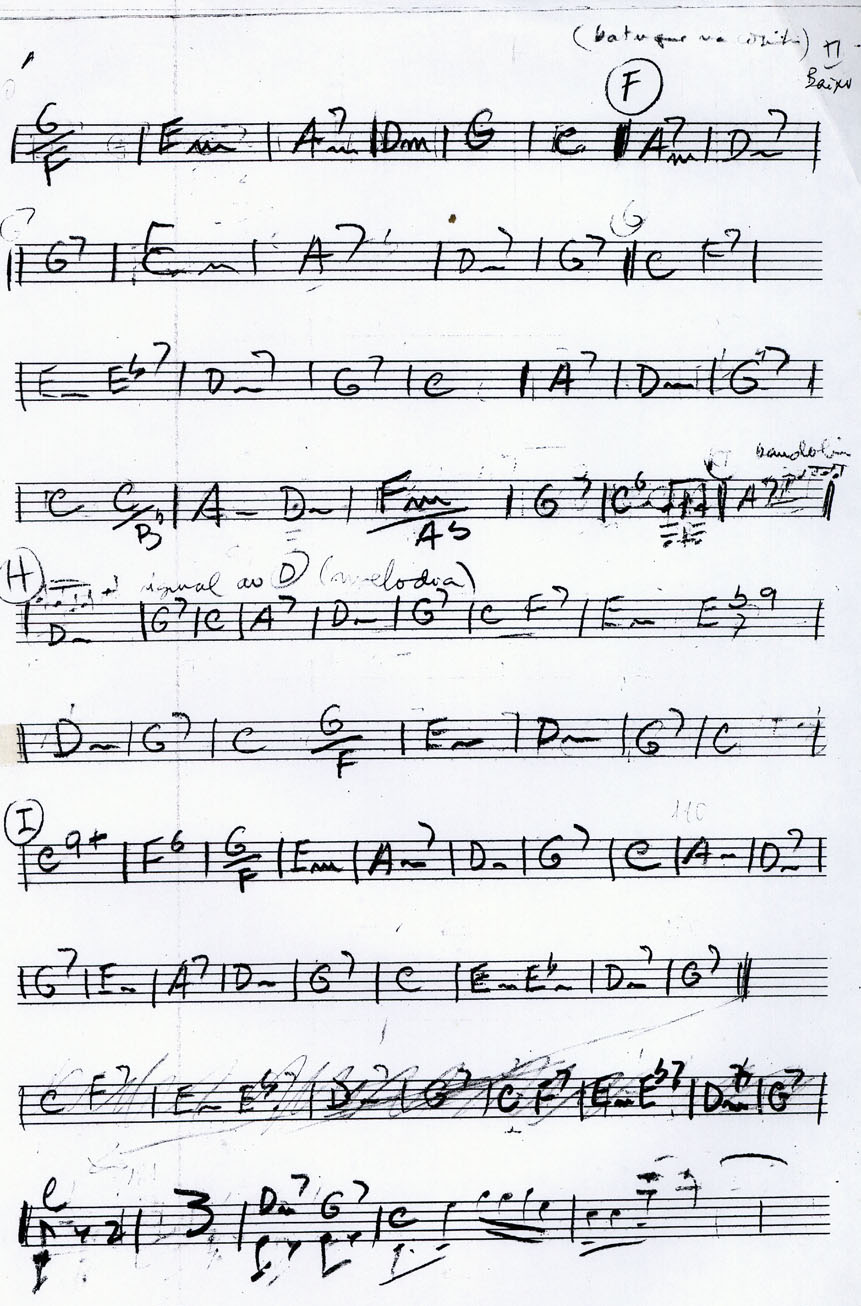 (batuque na
Baixo
F
G/F | Em | Am7 | Dm | G | C || Am7 | Dm7 |
G
|| G7 | Em | A7 | Dm7 | G7 || C F7 |
| Em Eb7 | Dm7 | G7 | C | A7 | Dm | G7 |
bandolim
| C C/Bb | Am Dm | Fm/Ab | G7 | C6 || A7 ||
H igual ao D (melodia)
| Dm | G7 | C | A7 | Dm | G7 | C F7 | Em E7b9 |
|| Dm | G7 | C G/F | Em | Dm | G7 | C |
I
| C9+ | F6 | G/F | Em | Am7 | Dm | G7 | C | Am | Dm7 |
| G7 | Em | A7 | Dm | G7 | C | Em Ebm | Dm7 | G7 ||
| C F7 | Em Eb7 | Dm7 | G7 | C F7 | Em Eb7 | Dm7 | G7 |
|| C | 3 | Dm7 G7 | C | | |